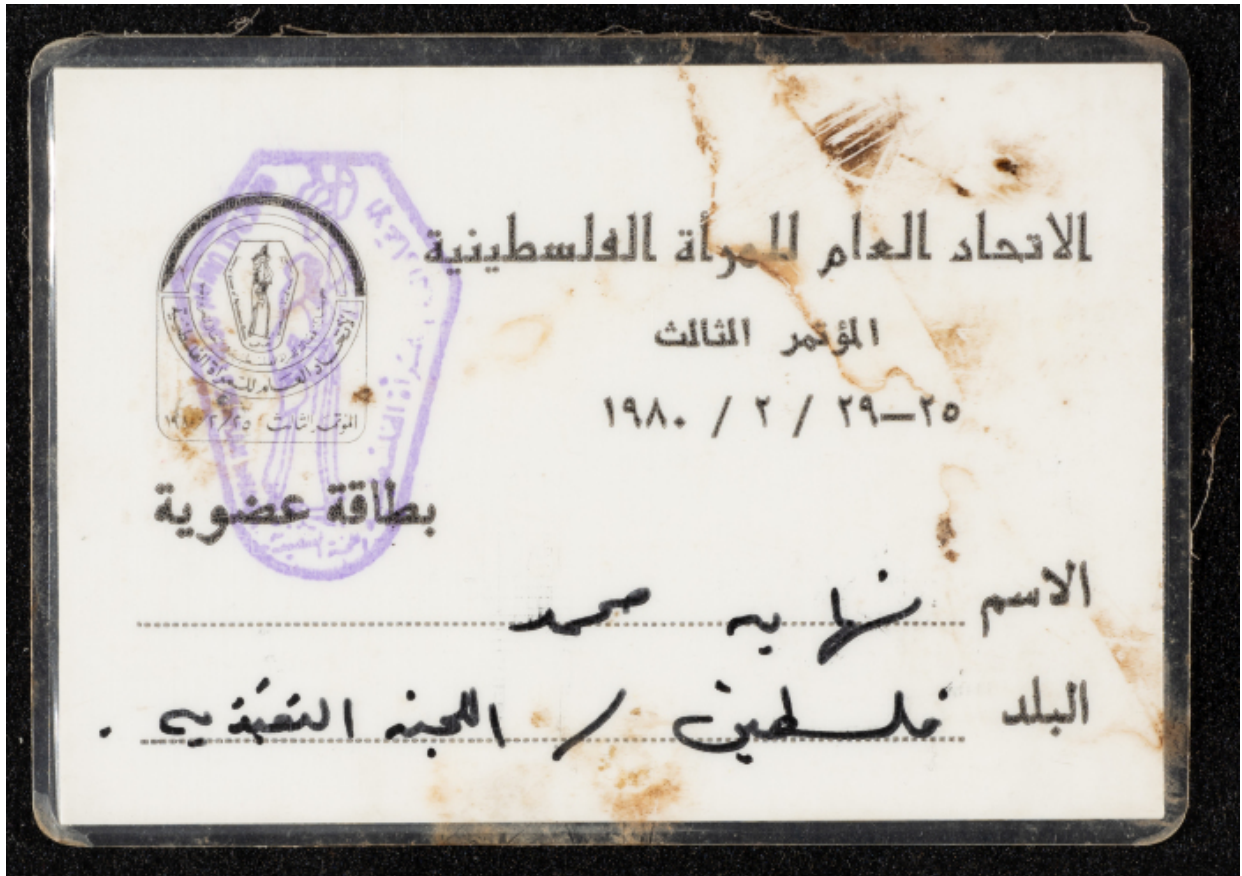 الاتحاد العام للمرأة الفلسطينية
المؤتمر الثالث
٢٥–٢٩ / ٢ / ١٩٨٠
الاتحاد العام للمرأة الفلسطينية
المؤتمر الثالث
بطاقة عضوية
الاسم نهايه محمد
البلد فلسطين / اللجنه التنفيذيه .